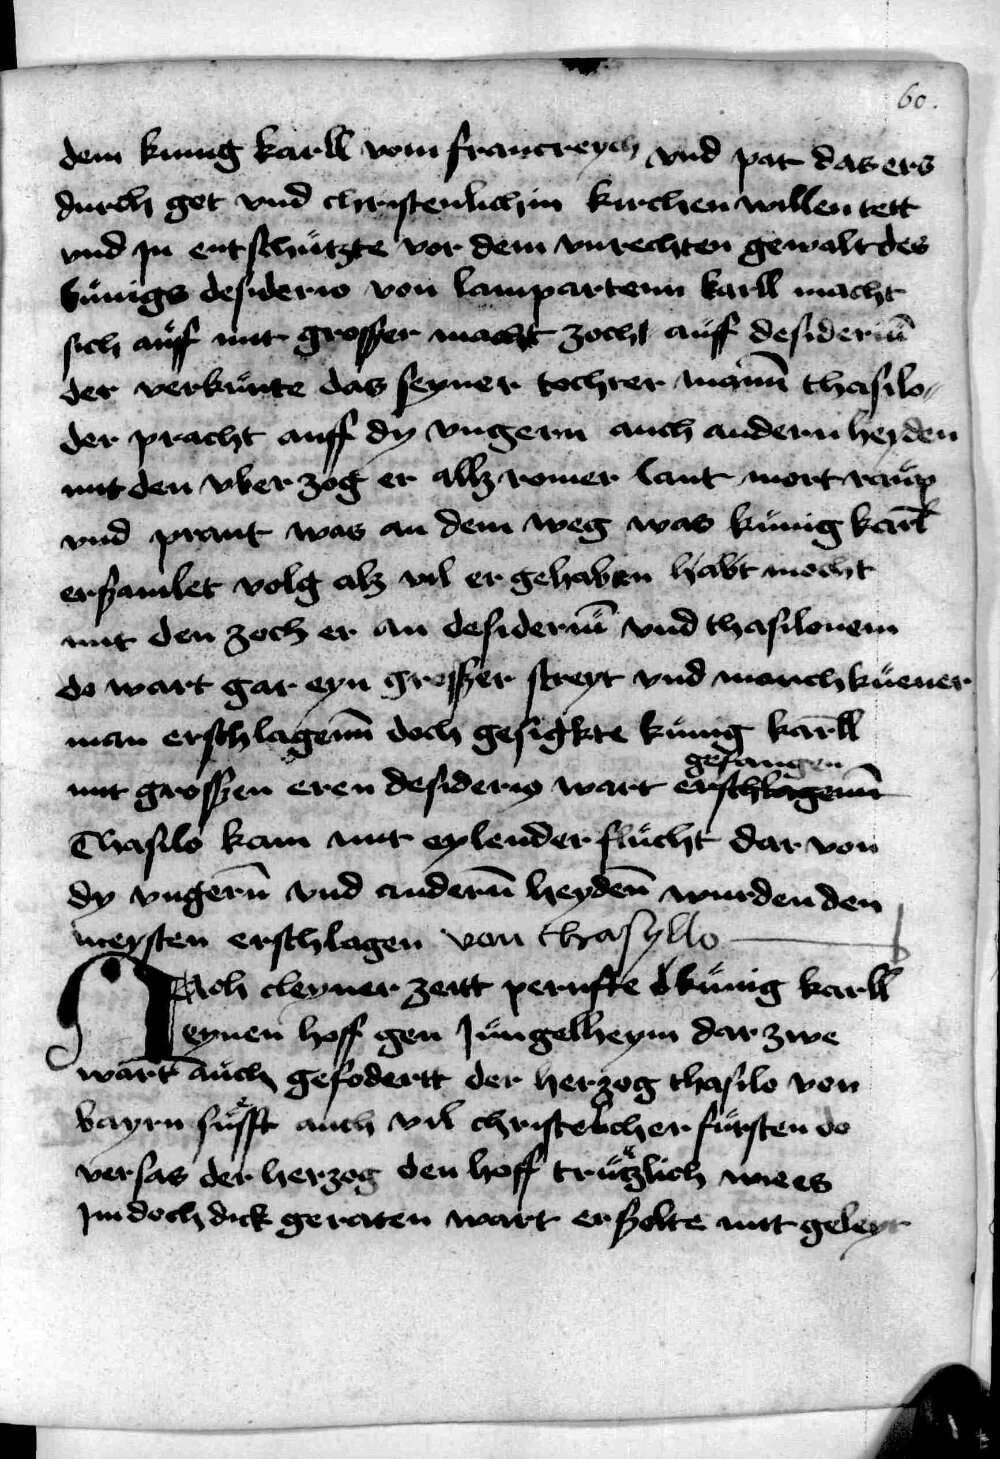 60.
dem kunig karll vom franckreych vnd pat das ers
durch got vnd christenlichin kirchen willen tett
vnd jn entschützte vor dem vnrechten gewalt des
künigs desiderio von lampartenn karll macht
sich aüff mit grosser macht zoch auff desideriū
der verkünte das seyner tochter mann̄ thasilo
der pracht auff dy vngern auch andern heyden
mit den vber zog er allz romer lant mort raüp
vnd prant was an dem weg was künig karl
ersamlet volg alz vil er gehaben habt mocht
mit den zoch er an desideriū vnd thasilonem
do wart gar eyn grosser streyt vnd manch küener
man erschlagenn̄ doch gesigkte künig karll
gefangen
mit grossen eren desiderio wart erschlagenn̄
Thasilo kam mit eylender flücht dar von
dy vngerñ vnd anderñ heydeñ wurden den
meysten erschlagen von thasyllo
Nach cleyner zeitt peruffte künig karll
eynen hoff gen Jüngelheym dar zwe
wart aüch gefodertt der herzog thasilo von
bayrn süsst auch vil christelicher fürsten do
versas der herzog den hoff trützlich wie es
jm doch dick geraten wart er solte mit geleyt